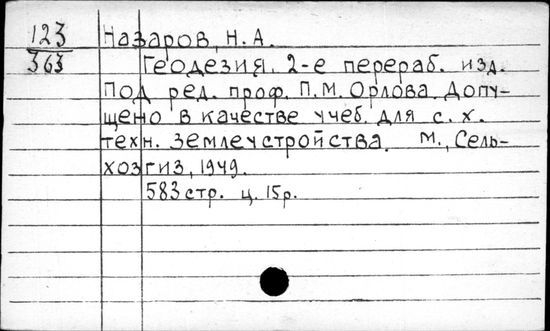 123 Назаров, Н.А.
363 Геодезия. 2-е перераб. изд.
Под ред. проф. П.М. Орлова. Допу-
щено в качестве учеб. для с. х.
техн. землеустройства. М., Сель-
хозгиз, 1949.
583 стр. ц. 15р.